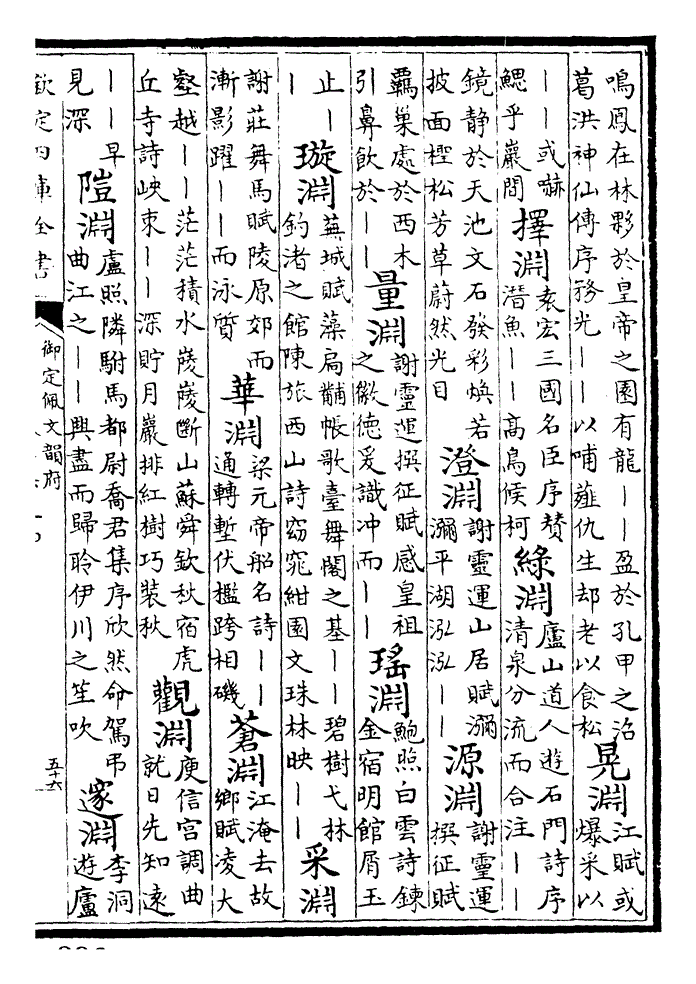 鳴鳳在林夥於皇帝之園有龍——盈於孔甲之沼
葛洪神仙傳序務光——以哺薤仇生却老以食松
晃淵
江賦或
爆采以
——或嚇
鰓乎巖間
擇淵
袁宏三國名臣序贊
潛魚——高鳥候柯
綠淵
廬山道人遊石門詩序
清泉分流而合注——
鏡静於天池文石發彩煥若
披面檉松芳草蔚然光目
澄淵
謝靈運山居賦瀰
瀰平湖泓泓——
源淵
謝靈運
撰征賦
羈巢處於西木
引鼻飲於——
量淵
謝靈運撰征賦感皇祖
之徽德爰識冲而——
瑤淵
鮑照白雲詩鍊
金宿明館屑玉
止—
—
璇淵
蕪城賦藻扃黼帳歌臺舞閣之基——碧樹弋林
釣渚之館陳旅西山詩窈窕紺園文珠林映——
采淵
謝莊舞馬賦陵原郊而
漸影躍——而泳質
華淵
梁元帝船名詩——
通轉塹伏檻跨相磯
蒼淵
江淹去故
鄉賦凌大
壑越——茫茫積水崚崚斷山蘇舜欽秋宿虎
丘寺詩峽束——深貯月巖排紅樹巧装秋
觀淵
庾信宫調曲
就日先知遠
——早
見深
隑淵
盧照隣駙馬都尉喬君集序欣然命駕弔
曲江之——興盡而歸聆伊川之笙吹
邃淵
李洞
遊廬
欽定四庫全書
御定佩文韻府
五十六